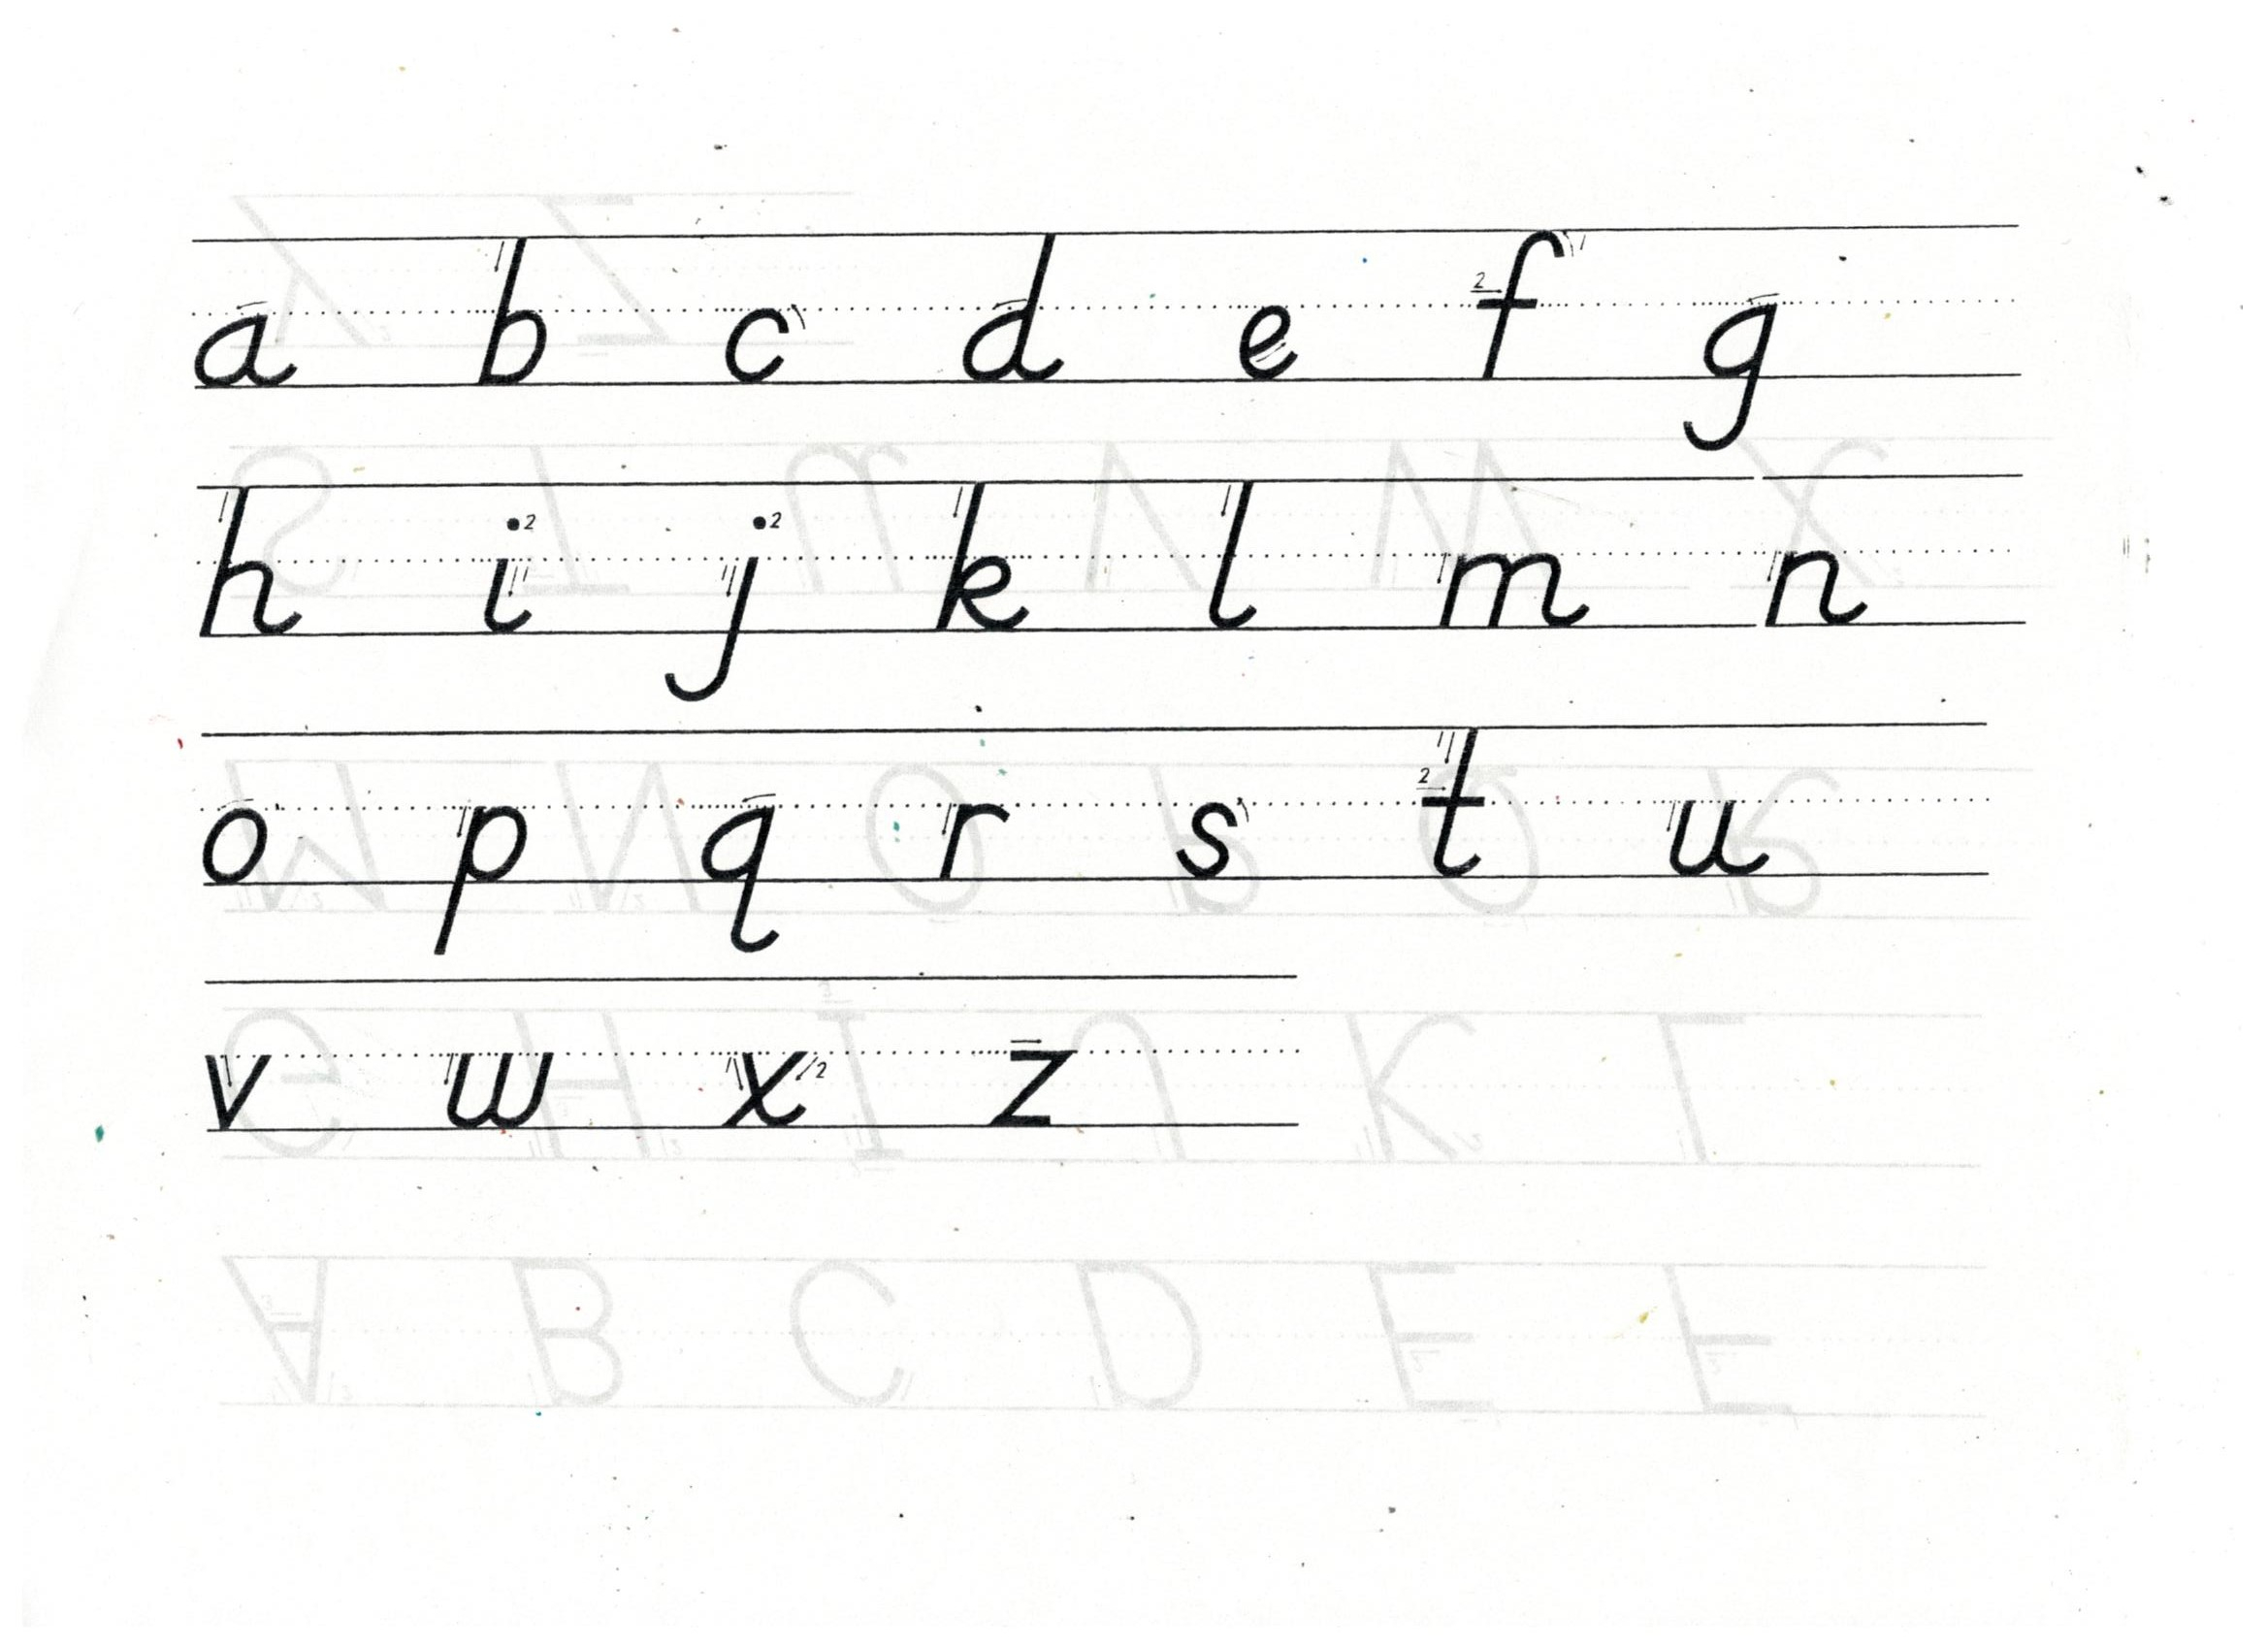 a b c d e f g
h i j k l m n
o p q r s t u
v w x z